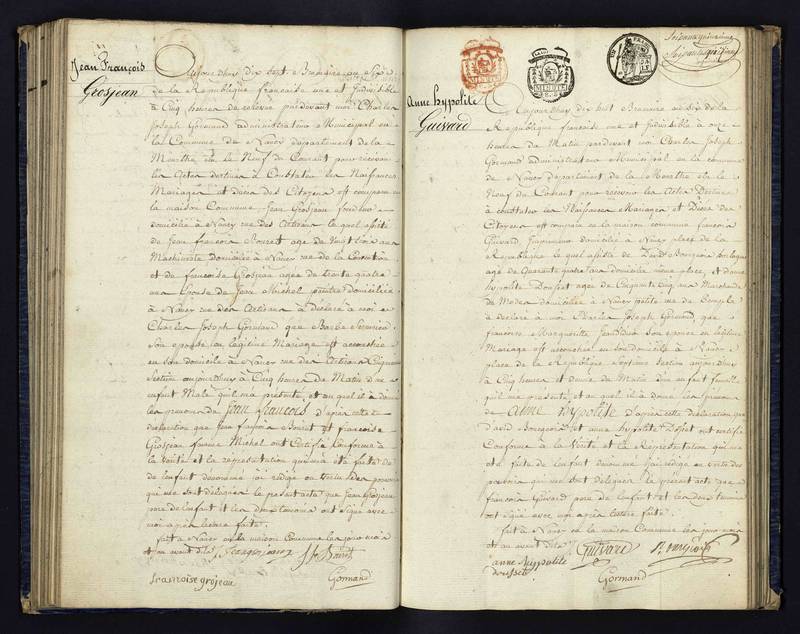 Jean François
Grosjean
Aujourd'huy dix sept Brumaire an Six
de la Republique française une et Indivisible
à Cinq heures de relevée pardevant moi Charles
Joseph Gormand administrateur Municipal en
la Commune de Nancy département de la
Meurthe élu le Neuf du Courant pour recevoir
les Actes destinés à Constater les Naissances
Mariages et décès des Citoyens est comparu en
la maison Commune Jean Grosjean
domicilié à Nancy rue des Artisans lequel assisté
de Jean françois Bouret agé de vingt trois ans
Machiniste domicilié à Nancy rue de la Convention
et de françoise Grosjean agée de trente quatre
ans Epouse de Jean Michel peintre domiciliée
à Nancy rue des Artisans a déclaré à moi
Charles Joseph Gormand que Barbe
Son epouse en légitime Mariage est accouchée
en son domicile à Nancy rue des Artisans Cinquieme
Section aujourd'huy à Cinq heures du Matin d'un
enfant Male qu'il m'a présenté, et auquel il a donné
les prenoms de Jean François d'après cette
declaration que Jean françois Bouret et françoise
Grosjean femme Michel ont Certifié Conforme à
la vérité et la représentation qui m'a été faite de
l'enfant denommé j'ai rédigé en vertu des pouvoirs
qui me sont délégués le present acte que Jean Grosjean
pere de l'enfant et les deux temoins ont signé avec
moi après lecture faite.
fait à Nancy en la maison Commune les jour mois
et an avant dits J f Bouret
francoise grojean Gormand
Anne hypolite
Guivard
MINUTE
Aujourd'huy dix huit Brumaire an Six de la
Republique française une et Indivisible à onze
heures du Matin pardevant moi Charles Joseph
Gormand administrateur Municipal en la commune
de Nancy département de la Meurthe élu le
Neuf du Courant pour recevoir les Actes Destinés
à constater les Naissances Mariages et Décès des
Citoyens est comparu en la maison commune françois
Guivard Imprimeur domicilié à Nancy place de la
Republique lequel assisté de David Bourgeois horloger
agé de Quarante quatre ans domicilié même place, et d'anne
hypolite agée de Cinquante Cinq ans Marchande
de Modes domiciliée à Nancy petite rue
a déclaré à moi Charles Joseph Gormand que
françoise Marguerite son épouse en légitime
Mariage est accouchée en son domicile à Nancy
place de la République Septieme section aujourd'huy
à Cinq heures et demie du Matin d'un enfant femelle
qu'il m'a présenté et auquel il a donné les prenoms
de Anne hypolite d'après cette declaration que
David Bourgeois et anne hypolite ont certifié
Conforme à la Vérité et la Représentation qui m'a
été faite de l'enfant denommé j'ai rédigé en vertu des
pouvoirs qui me sont délégués le présent acte que
françois Guivard pere de l'enfant et les deux temoins
ont signé avec moi après lecture faite.
fait à Nancy en la maison Commune les jour mois
et an avant dits Guivard Bourgeois
anne hippolite
Gormand